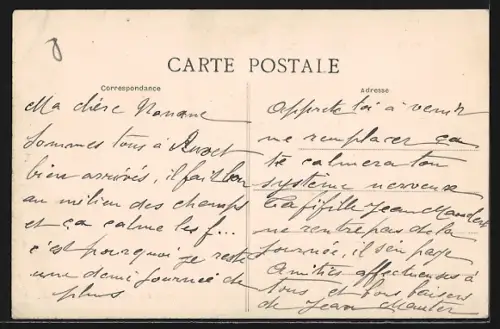 CARTE POSTALE
Correspondance
Adresse
Ma chère Nonone
Sommes tous à
bien arrivés, il fait bon
au milieu des champs
et ça calme les f...
c'est pourquoi je reste
une demi journée de
plus
Apprête toi à venir
me remplacer ça
te calmera ton
système nerveux
Ta fifille Jean
ne rentre pas de la
journée, il s'en paye
Amitiés affectueuses à
tous et bons baisers
de Jean